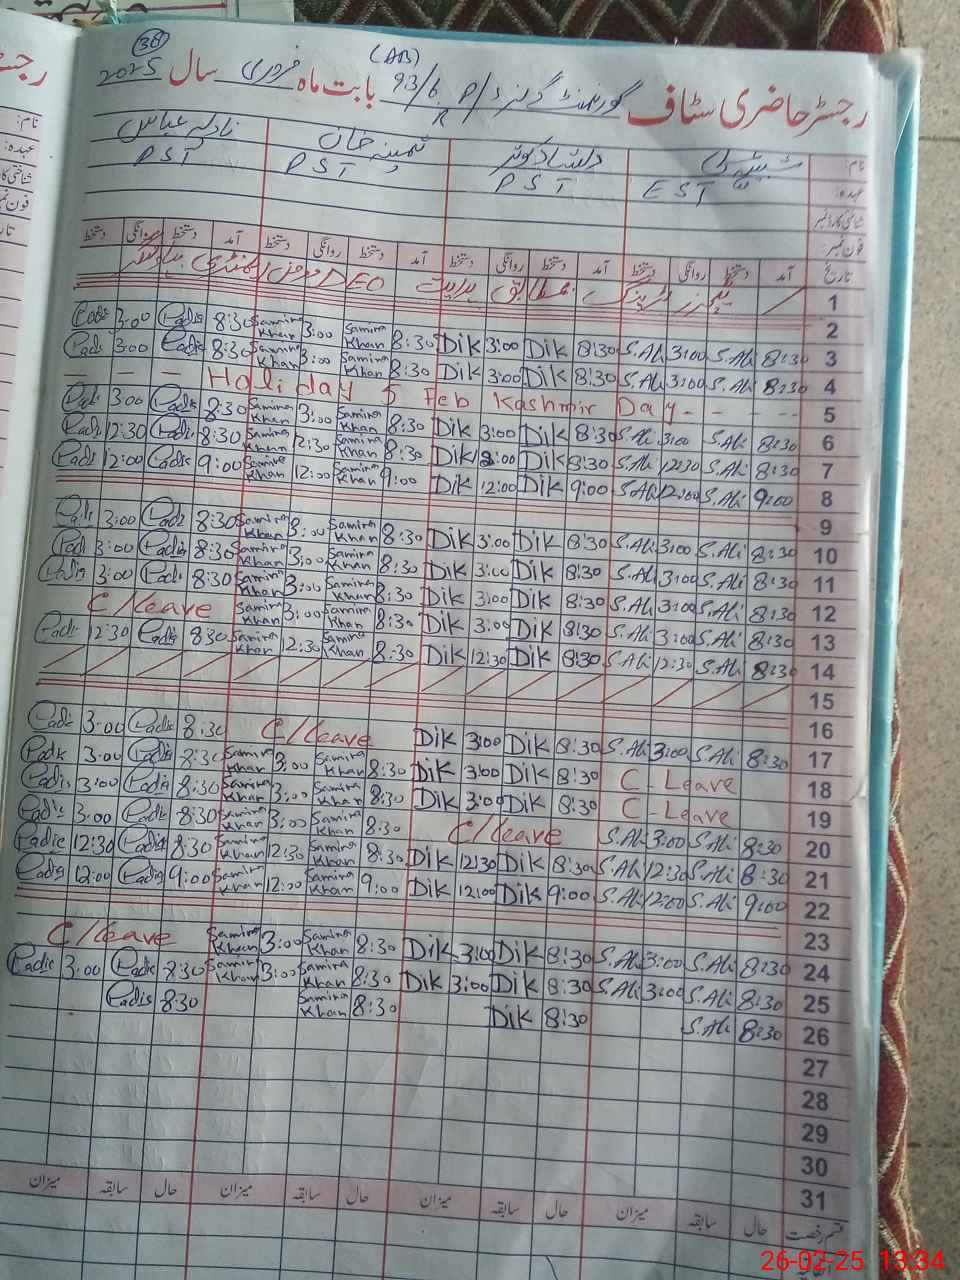 رجسٹر حاضری سٹاف گورنمنٹ گرلز / P 93/6.R (AB) بابت ماہ فروری سال 2025
36
نام:
عہدہ: EST PST PST PST
شناختی کارڈ نمبر
فون نمبر:
تاریخ آمد دستخط روانگی دستخط آمد دستخط روانگی دستخط آمد دستخط روانگی دستخط آمد دستخط روانگی دستخط
1 DEO
2
3 8:30 S.Ali 3:00 S.Ali 8:30 Dik 3:00 Dik 8:30 Samina Khan 3:00 Samina Khan 8:30 Eadis 3:00 Eadis
4 8:30 S.Ali 3:00 S.Ali 8:30 Dik 3:00 Dik 8:30 Samina Khan 3:00 Samina Khan 8:30 Eadis 3:00 Eadis
5 - - - Holiday 5 Feb Kashmir Day - - - -
6 8:30 S.Ali 3:00 S.Ali 8:30 Dik 3:00 Dik 8:30 Samina Khan 3:00 Samina Khan 8:30 Eadis 3:00 Eadis
7 8:30 S.Ali 12:30 S.Ali 8:30 Dik Dik 8:30 Samina Khan 12:30 Samina Khan 8:30 Eadis 12:30 Eadis
8 9:00 S.Ali 12:00 S.Ali 9:00 Dik 12:00 Dik 9:00 Samina Khan 12:00 Samina Khan 9:00 Eadis 12:00 Eadis
9
10 8:30 S.Ali 3:00 S.Ali 8:30 Dik 3:00 Dik 8:30 Samina Khan 3:00 Samina Khan 8:30 Eadis 3:00 Eadis
11 8:30 S.Ali 3:00 S.Ali 8:30 Dik 3:00 Dik 8:30 Samina Khan 3:00 Samina Khan 8:30 Eadis 3:00 Eadis
12 8:30 S.Ali 3:00 S.Ali 8:30 Dik 3:00 Dik 8:30 Samina Khan 3:00 Samina Khan 8:30 Eadis 3:00 Eadis
13 8:30 S.Ali 3:00 S.Ali 8:30 Dik 3:00 Dik 8:30 Samina Khan 3:00 Samina Khan C/leave
14 8:30 S.Ali 12:30 S.Ali 8:30 Dik 12:30 Dik 8:30 Samina Khan 12:30 Samina Khan 8:30 Eadis 12:30 Eadis
15
16
17 8:30 S.Ali 3:00 S.Ali 8:30 Dik 3:00 Dik C/leave 8:30 Eadis 3:00 Eadis
18 C - Leave 8:30 Dik 3:00 Dik 8:30 Samina Khan 3:00 Samina Khan 8:30 Eadis 3:00 Eadis
19 C - Leave 8:30 Dik 3:00 Dik 8:30 Samina Khan 3:00 Samina Khan 8:30 Eadis 3:00 Eadis
20 8:30 S.Ali 3:00 S.Ali C/leave 8:30 Samina Khan 3:00 Samina Khan 8:30 Eadis 3:00 Eadis
21 8:30 S.Ali 12:30 S.Ali 8:30 Dik 12:30 Dik 8:30 Samina Khan 12:30 Samina Khan 8:30 Eadis 12:30 Eadis
22 9:00 S.Ali 12:00 S.Ali 9:00 Dik 12:00 Dik 9:00 Samina Khan 12:00 Samina Khan 9:00 Eadis 12:00 Eadis
23
24 8:30 S.Ali 3:00 S.Ali 8:30 Dik 3:00 Dik 8:30 Samina Khan 3:00 Samina Khan C/leave
25 8:30 S.Ali 3:00 S.Ali 8:30 Dik 3:00 Dik 8:30 Samina Khan 3:00 Samina Khan 8:30 Eadis 3:00 Eadis
26 8:30 S.Ali 8:30 Dik 8:30 Samina Khan 8:30 Eadis
27
28
29
30
31
قسم رخصت حال سابقہ میزان حال سابقہ میزان حال سابقہ میزان حال سابقہ میزان
26-02-25 13:34